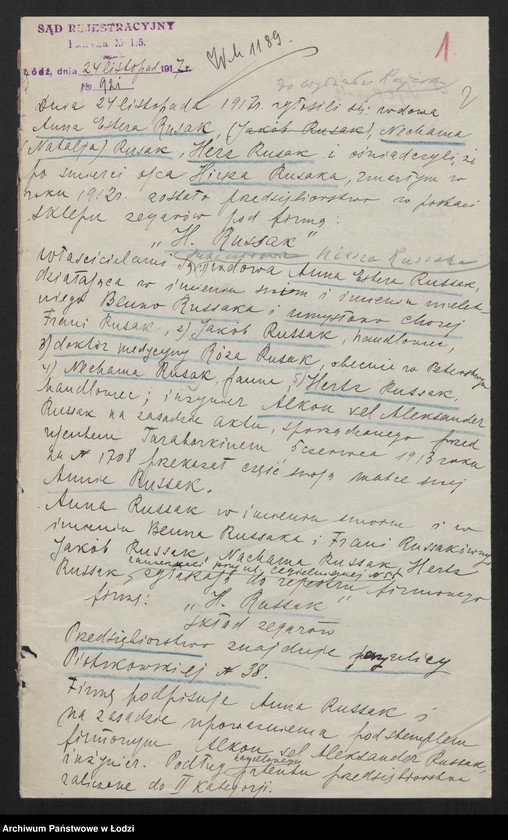 SĄD REJESTRACYJNY
Łódź, dnia 24 listopad 1917 r.
No 921
W.h 1189.
1
do wydziału
Dnia 24 listopada 1917 r. zgłosili się wdowa
Anna Estera Rusak, (Jakób Rusak), Nechama
(Natalja) Rusak, Herz Rusak i oświadczyli, że
po śmierci ojca Hirska Rusaka, zmarłym w
roku 1912 r. zostało przedsiębiorstwo w postaci
sklepu zegarów pod firmą:
„H. Russak"
Hirska Russaka
Właścicielami są: 1) wdowa Anna Estera Russak,
działająca w imieniu swoim i imieniu małolet-
niego Benno Russaka i umysłowo chorej
Frani Rusak, 2) Jakób Russak, handlowiec,
3) doktor medycyny Róża Rusak, obecnie w Petersburgu
4) Nechama Rusak, panna, 5) Hertz Russak,
handlowiec; inżynier Alkon vel Aleksander
Russak na zasadzie aktu, sporządzonego przed
rejentem 5 czerwca 1913 roku
za № 1708 przelał część swoją matce swej
Annie Russak.
Anna Russak w imieniu swoim i w
imieniu Benna Russaka i Frani Russakówny,
Jakób Russak, Nachama Russak, Hertz
zamieszkali przy ul. Cegielnianej № 55
Russak, zgłaszają do rejestru firmowego
firmę:
„H. Russak"
skład zegarów
Przedsiębiorstwo znajduje przy ulicy
Piotrkowskiej № 38.
Firmę podpisuje Anna Russak i
na zasadzie upoważnienia pod stemplem
firmowym Alkon vel Aleksander Russak,
inżynier. Podług patentu przedsiębiorstwo
zaliczone do II kategorji.
Archiwum Państwowe w Łodzi